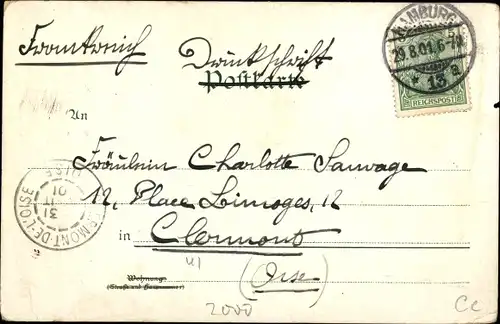 Frankreich
Drückschrift
Postkarte
HAMBURG
29.8.01.6-7N.
* 13 a
REICHSPOST
An
Fräulein Charlotte Sauvage
12, Place Limoges, 12
in Clermont
(Oise)
CLERMONT-DE-L'OISE
OISE
31
01
Wohnung:
(Straße und Hausnummer)
2000